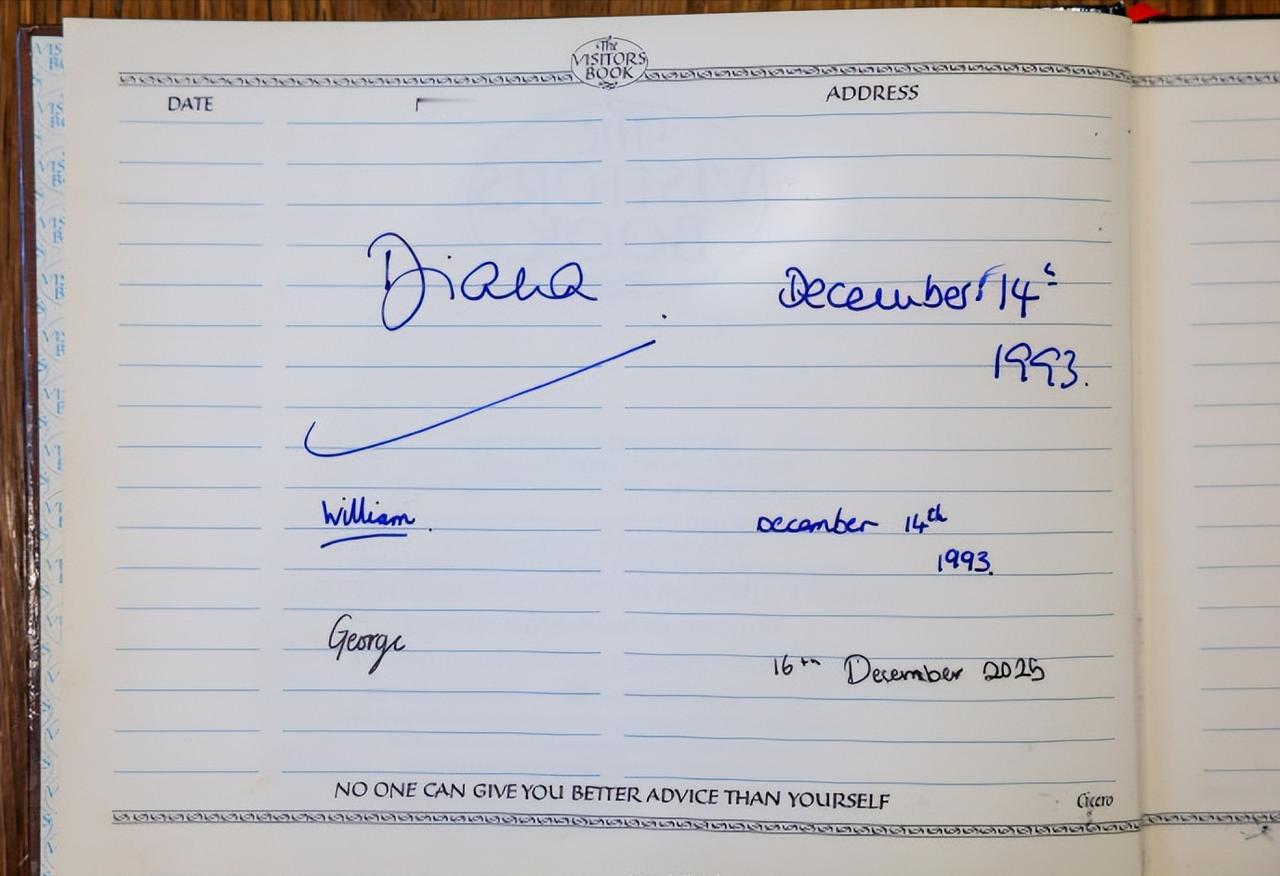 The
VISITORS
BOOK
DATE
ADDRESS
Diana
December 14
1993.
William.
December 14th
1993.
George
16th December 2025
NO ONE CAN GIVE YOU BETTER ADVICE THAN YOURSELF
Cicero